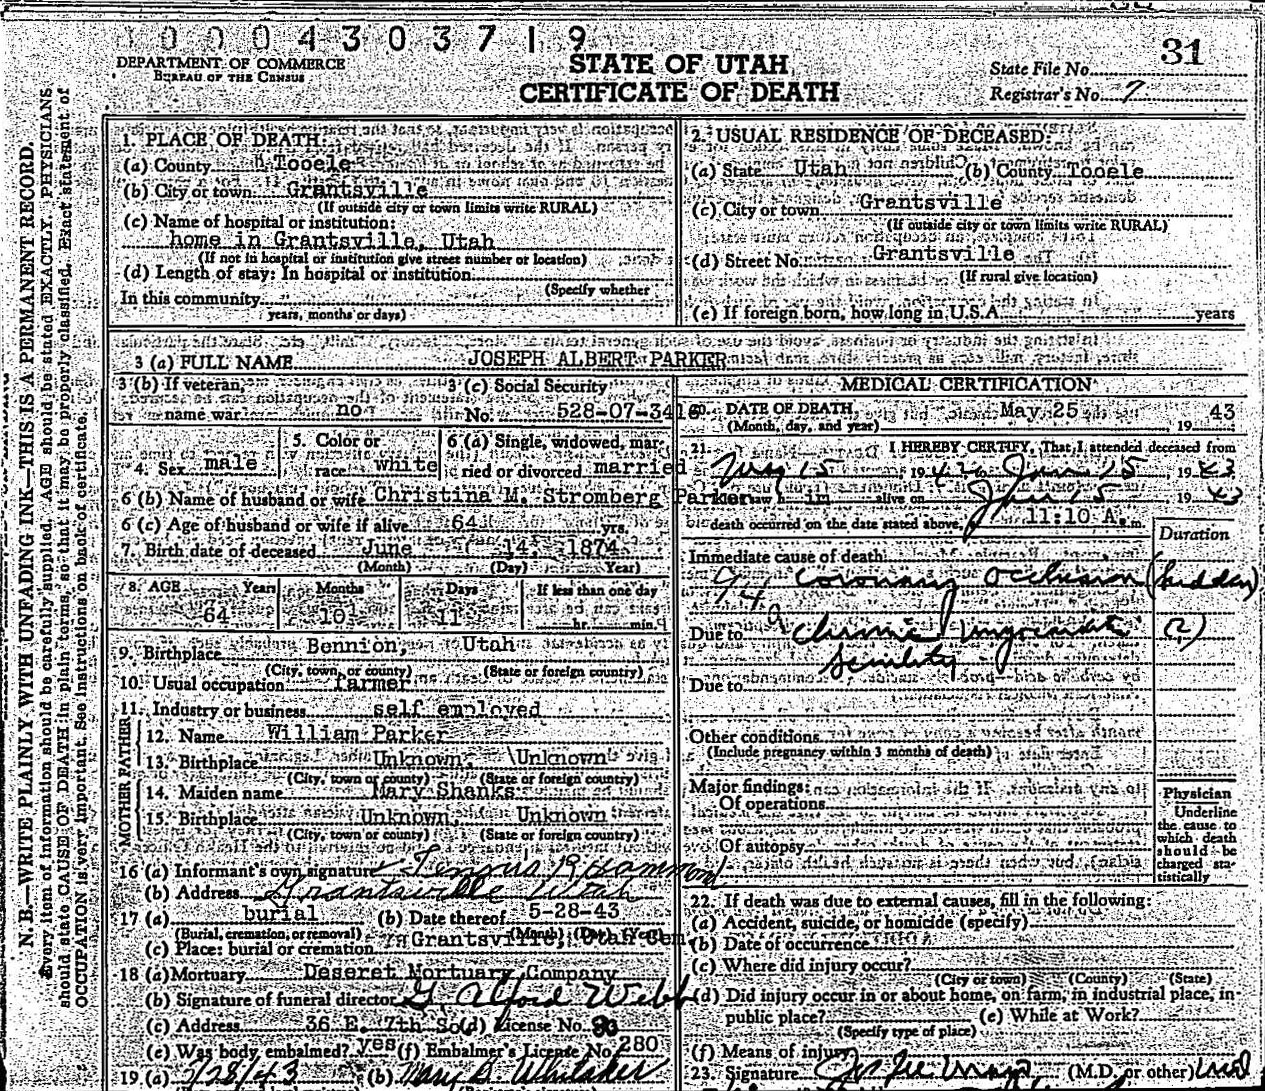 0 0 0 4 3 0 3 7 1 9
DEPARTMENT OF COMMERCE
BUREAU OF THE CENSUS
STATE OF UTAH
CERTIFICATE OF DEATH
State File No. 31
Registrar's No. 7
N. B.—WRITE PLAINLY WITH UNFADING INK—THIS IS A PERMANENT RECORD.
Every item of information should be carefully supplied. AGE should be stated EXACTLY. PHYSICIANS
should state CAUSE OF DEATH in plain terms, so that it may be properly classified. Exact statement of
OCCUPATION is very important. See instructions on back of certificate.
1. PLACE OF DEATH:
(a) County Tooele
(b) City or town Grantsville
(If outside city or town limits write RURAL)
(c) Name of hospital or institution:
home in Grantsville, Utah
(If not in hospital or institution give street number or location)
(d) Length of stay: In hospital or institution
(Specify whether
In this community
years, months or days)
2. USUAL RESIDENCE OF DECEASED:
(a) State Utah (b) County Tooele
(c) City or town Grantsville
(If outside city or town limits write RURAL)
(d) Street No. Grantsville
(If rural give location)
(e) If foreign born, how long in U.S.A. years
3 (a) FULL NAME JOSEPH ALBERT PARKER
3 (b) If veteran,
name war no
3 (c) Social Security
No. 528-07-3416
4. Sex male
5. Color or
race white
6 (a) Single, widowed, mar-
ried or divorced married
6 (b) Name of husband or wife Christina M. Stromberg Parker
6 (c) Age of husband or wife if alive 64 yrs.
7. Birth date of deceased June 14, 1874
(Month) (Day) Year)
8. AGE Years Months Days If less than one day
64 10 11 hr. min.
9. Birthplace Bennion, Utah
(City, town, or county) (State or foreign country)
10. Usual occupation farmer
11. Industry or business self employed
FATHER
12. Name William Parker
13. Birthplace Unknown, Unknown
(City, town or county) (State or foreign country)
MOTHER
14. Maiden name Mary Shanks
15. Birthplace Unknown, Unknown
(City, town or county) (State or foreign country)
16 (a) Informant's own signature Tennis R Hammond
(b) Address Grantsville Utah
17 (a) burial (b) Date thereof 5-28-43
(Burial, cremation, or removal) (Month) (Day) (Year)
(c) Place: burial or cremation Grantsville, Utah Cem.
18 (a) Mortuary Deseret Mortuary Company
(b) Signature of funeral director G. Alford Webb
(c) Address 36 E. 7th So. (d) License No.
(e) Was body embalmed? yes (f) Embalmer's License No. 280
19 (a) /28/43 (b) Mary B. Whitaker
MEDICAL CERTIFICATION
20. DATE OF DEATH May 25 19 43
(Month, day, and year)
21. I HEREBY CERTIFY, That I attended deceased from
15 19 42 to Jan 15 19 43
saw h im alive on Jan 15 19 43
death occurred on the date stated above, 11:10 A. m.
Duration
Immediate cause of death:
94a Coronary Occlusion (sudden)
Due to Chronic (2)
Senility
Due to
Other conditions
(Include pregnancy within 3 months of death)
Major findings:
Of operations
Of autopsy
Physician
Underline
the cause to
which death
should be
charged sta-
tistically
22. If death was due to external causes, fill in the following:
(a) Accident, suicide, or homicide (specify)
(b) Date of occurrence
(c) Where did injury occur?
(City or town) (County) (State)
(d) Did injury occur in or about home, on farm, in industrial place, in
public place? (e) While at Work?
(Specify type of place)
(f) Means of injury
23. Signature (M.D. or other)